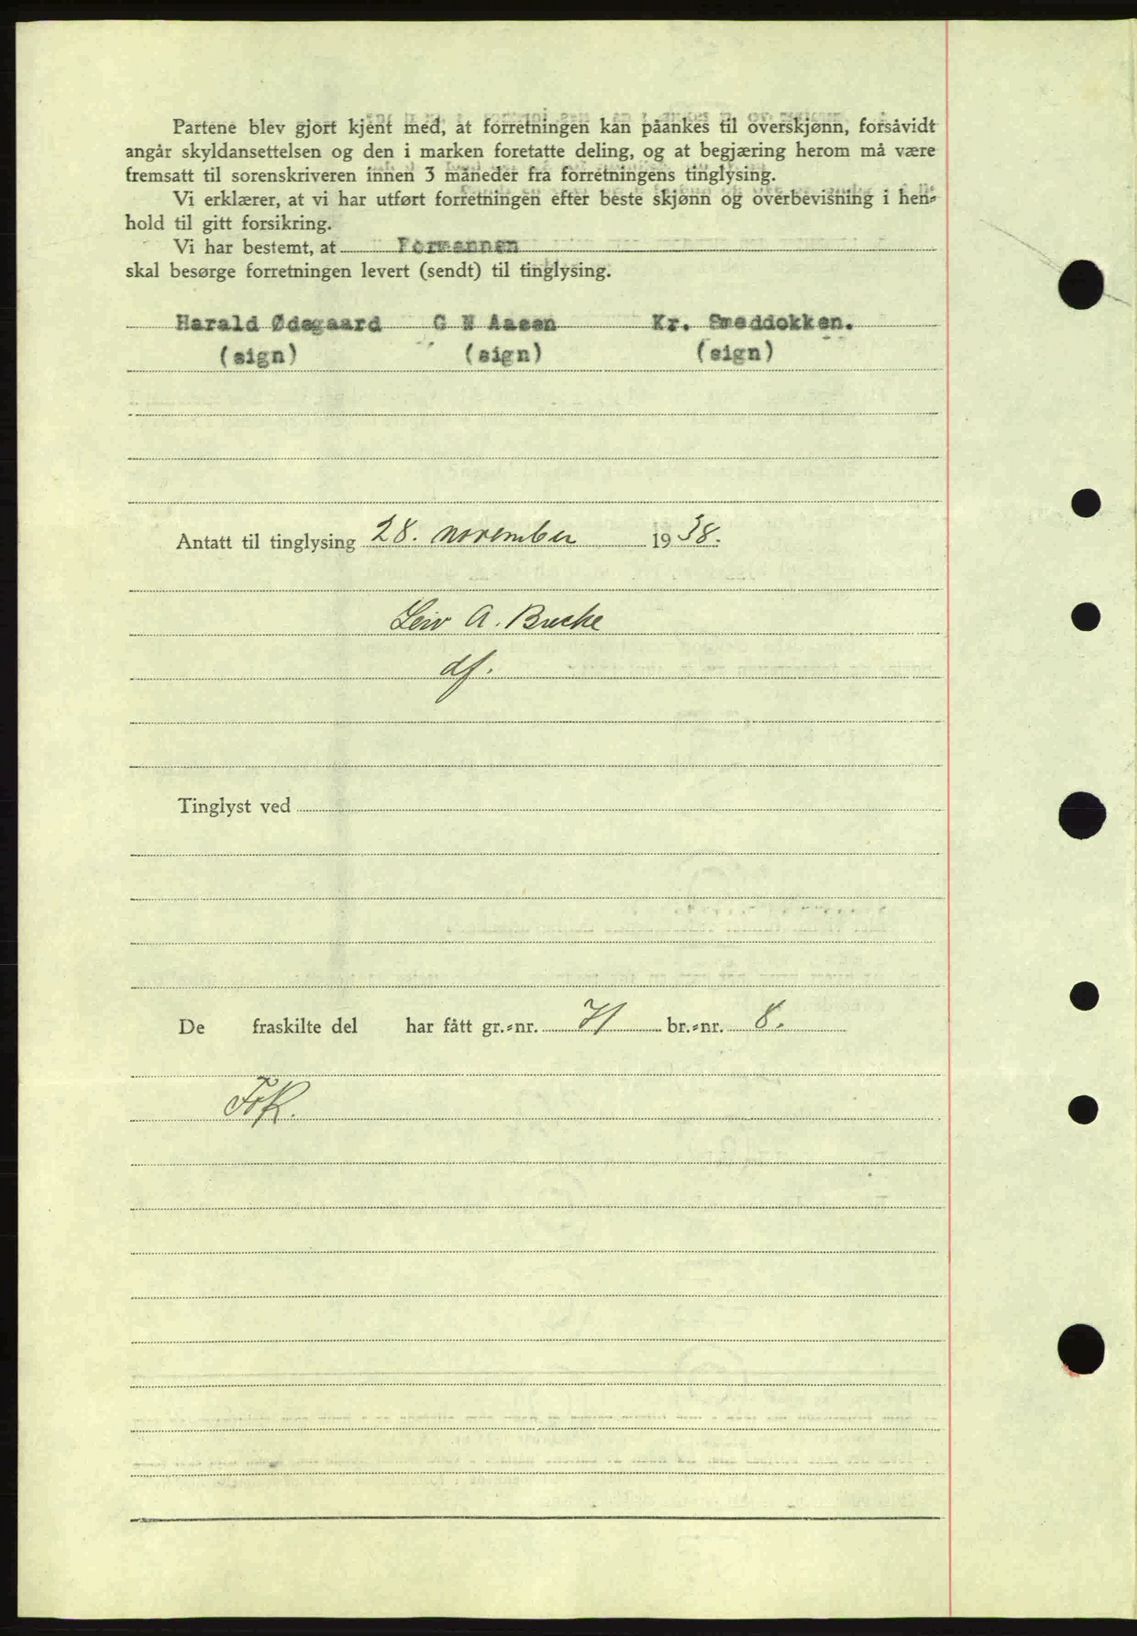 Partene blev gjort kjent med, at forretningen kan påankes til overskjønn, forsåvidt
angår skyldansettelsen og den i marken foretatte deling, og at begjæring herom må være
fremsatt til sorenskriveren innen 3 måneder fra forretningens tinglysing.
Vi erklærer, at vi har utført forretningen efter beste skjønn og overbevisning i hen-
hold til gitt forsikring.
Vi har bestemt, at Formannen
skal besørge forretningen levert (sendt) til tinglysing.
Harald Ødegaard G N Aasen Kr. Smeddokken.
(sign) (sign) (sign)
Antatt til tinglysing 28. november 1938.
Leiv A. Bucke
df.
Tinglyst ved
De fraskilte del har fått gr.-nr. 71 br.-nr. 8.